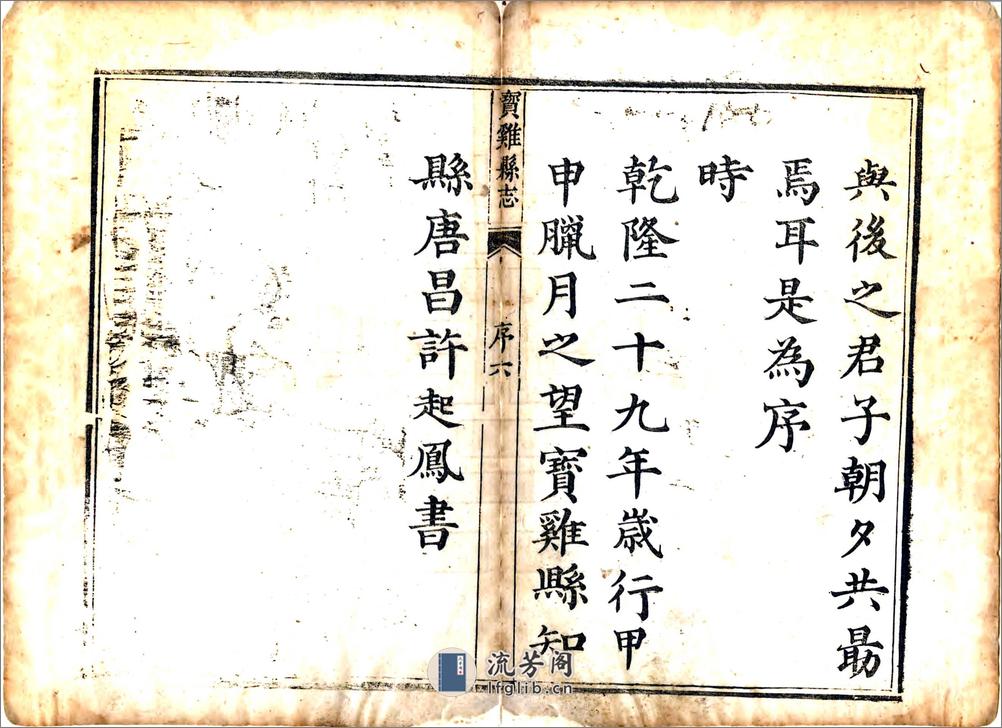 與後之君子朝夕共勗
焉耳是為序
時
乾隆二十九年歲行甲
申臘月之望寶雞縣知
寶雞縣志
序六
縣唐昌許起鳳書
流芳阁
lfglib.cn